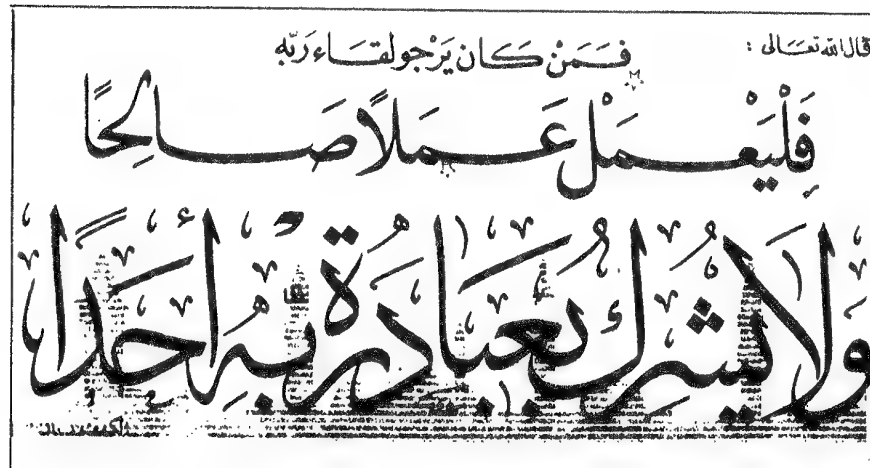 قال الله تعَالى : فَمَنْ كَان يَرْجو لقَاء رَبّه
فَلْيَعْمَلْ عَمَلاً صَالِحًا
وَلا يُشْرِك بعِبَادَة رَبِّهِ أَحَدًا